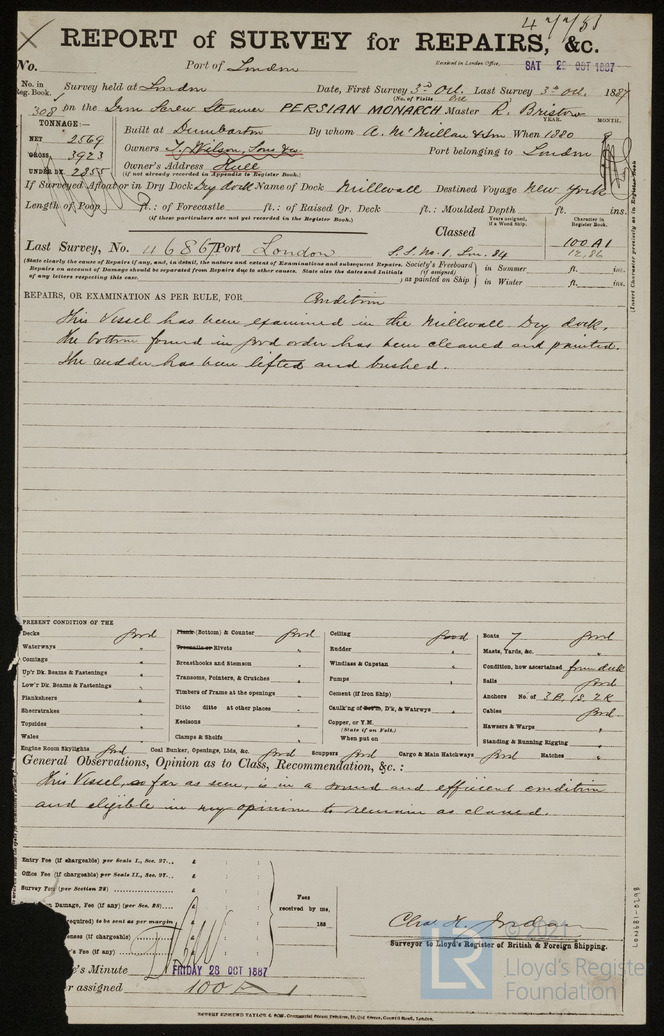 47781
REPORT of SURVEY for REPAIRS, &c.
No. Port of London Received in London Office, SAT 29 OCT 1887
No. in Reg. Book. Survey held at London Date, First Survey 3rd Oct. Last Survey 3rd Oct. 1887
(No. of Visits One)
308 on the Iron Screw Steamer PERSIAN MONARCH Master R. Bristow
TONNAGE:— YEAR. MONTH.
NET 2569 Built at Dumbarton By whom A. McMillan & Son When 1880 8
GROSS 3923 Owners T. Wilson, Sons & Co Port belonging to London
UNDER DK. 2855 Owner's Address Hull
(if not already recorded in Appendix to Register Book.)
If Surveyed Afloat or in Dry Dock Dry dock Name of Dock Millwall Destined Voyage New York
Length of Poop ft.: of Forecastle ft.: of Raised Qr. Deck ft.: Moulded Depth ft. ins.
(if these particulars are not yet recorded in the Register Book.)
Classed Years assigned, if a Wood Ship. Character in Register Book.
100A1
12,86
Last Survey, No. 11686 Port London S.S. No. 1, Lon. 84
(State clearly the cause of Repairs if any, and, in detail, the nature and extent of Examinations and subsequent Repairs.
Repairs on account of Damage should be separated from Repairs due to other causes. State also the dates and Initials
of any letters respecting this case.
Society's Freeboard (if assigned) as painted on Ship in Summer ft. ins.
in Winter ft. ins.
(Insert Character precisely as in Register Book
REPAIRS, OR EXAMINATION AS PER RULE, FOR Condition
This Vessel has been examined in the Millwall Dry dock,
the bottom found in good order has been cleaned and painted.
The rudder has been lifted and bushed.
PRESENT CONDITION OF THE
Decks good Plank (Bottom) & Counter good Ceiling good Boats 7 good
Waterways " Treenails or Rivets " Rudder " Masts, Yards, &c. "
Comings " Breasthooks and Stemson " Windlass & Capstan " Condition, how ascertained from deck
Up'r Dk. Beams & Fastenings " Transoms, Pointers, & Crutches " Pumps " Sails good
Low'r Dk. Beams & Fastenings " Timbers of Frame at the openings Cement (if Iron Ship) " Anchors No. of 3B, 1S, 2K
Planksheers " Ditto ditto at other places Caulk'ng of Bott'm, D'k, & Watrwys " Cables good
Sheerstrakes " Keelsons " Copper, or Y.M. Hawsers & Warps "
Topsides " (State if on Felt.)
Wales Clamps & Shelfs When put on Standing & Running Rigging "
Engine Room Skylights good Coal Bunker, Openings, Lids, &c. good Scuppers good Cargo & Main Hatchways good Hatches "
General Observations, Opinion as to Class, Recommendation, &c. :
This Vessel, as far as seen, is in a sound and efficient condition
and eligible in my opinion to remain as classed.
Entry Fee (if chargeable) per Scale I., Sec. 27... £ : :
Office Fee (if chargeable) per Scale II., Sec. 27. £ : :
Survey Fee (per Section 28) £ : :
Damage, Fee (if any) (per Sec. 28) £ : :
required) to be sent as per margin
enses (if chargeable) £ : :
's Fee (if any) £ : :
Fees received by me, 188
Chas. H. Jordan
Surveyor to Lloyd's Register of British & Foreign Shipping.
e's Minute FRIDAY 28 OCT 1887
r assigned 100 A 1
LON681-0298
© 2021
LR
Lloyd's Register
Foundation
ROBERT EDMUND TAYLOR & SON, Commercial Steam Printers, 19, Old Street, Goswell Road, London.